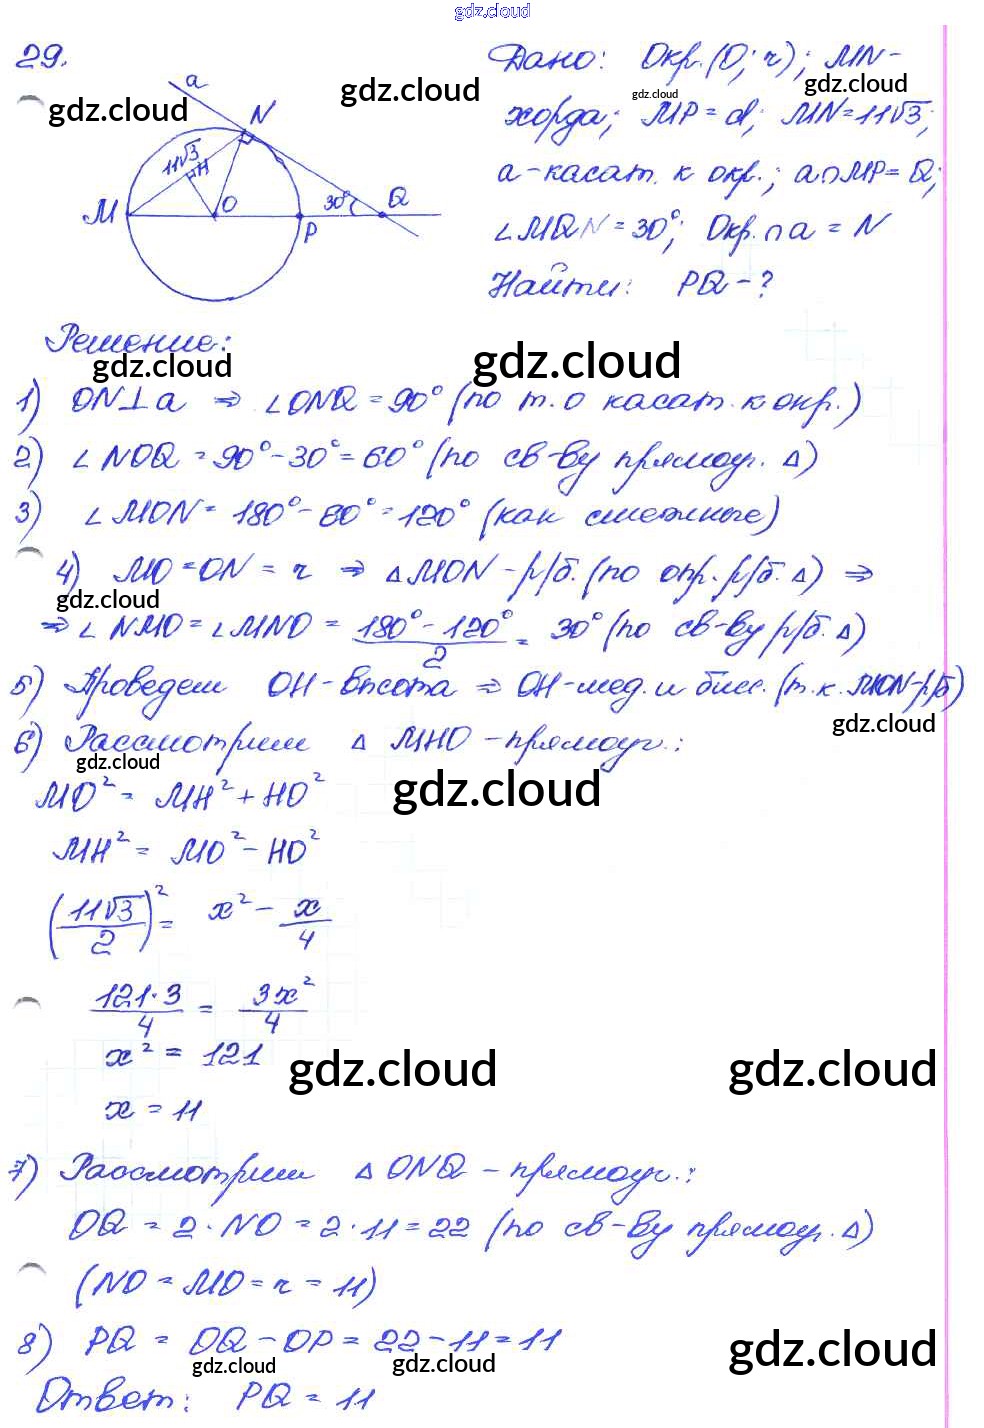 gdz.cloud
29.
a
N
gdz.cloud
11√3
H
M
O
30°
Q
P
Дано: Окр.(O; r); MN-
gdz.cloud gdz.cloud gdz.cloud
хорда; MP = d; MN = 11√3;
a - касат. к окр.; a∩MP = Q;
∠MQN = 30°; Окр.∩a = N
Найти: PQ - ?
Решение:
gdz.cloud gdz.cloud
1) ON⊥a ⇒ ∠ONQ = 90° (по т. о касат. к окр.)
2) ∠NOQ = 90° - 30° = 60° (по св-ву прямоуг. △)
3) ∠MON = 180° - 60° = 120° (как смежные)
4) MO = ON = r ⇒ △MON - р/б. (по опр. р/б. △) ⇒
gdz.cloud
⇒ ∠NMO = ∠MNO = (180° - 120°)/2 = 30° (по св-ву р/б. △)
5) Проведем OH - высота ⇒ OH - мед. и бисс. (т.к. MON - р/б)
gdz.cloud
6) Рассмотрим △ MHO - прямоуг.:
gdz.cloud gdz.cloud
MO² = MH² + HO²
MH² = MO² - HO²
(11√3/2)² = x² - x/4
121·3/4 = 3x²/4
x² = 121
gdz.cloud gdz.cloud
x = 11
7) Рассмотрим △ ONQ - прямоуг.:
OQ = 2 · NO = 2 · 11 = 22 (по св-ву прямоуг. △)
(NO = MO = r = 11)
8) PQ = OQ - OP = 22 - 11 = 11
gdz.cloud gdz.cloud gdz.cloud
Ответ: PQ = 11